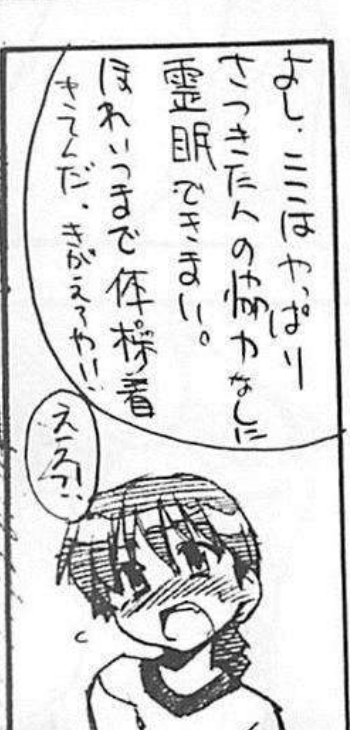 よし、ここはやっぱり
さつきたんの協力なしに
霊眠できまい。
ほれいつまで体操着
きてんだ、きがえろやい!!
ええっ?!